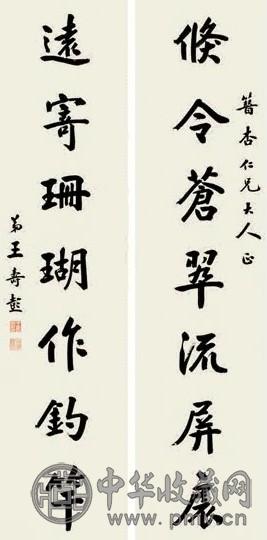 簪杏仁兄大人正
倏令蒼翠流屏扆
遠寄珊瑚作釣竿
弟王壽彭
中华收藏网